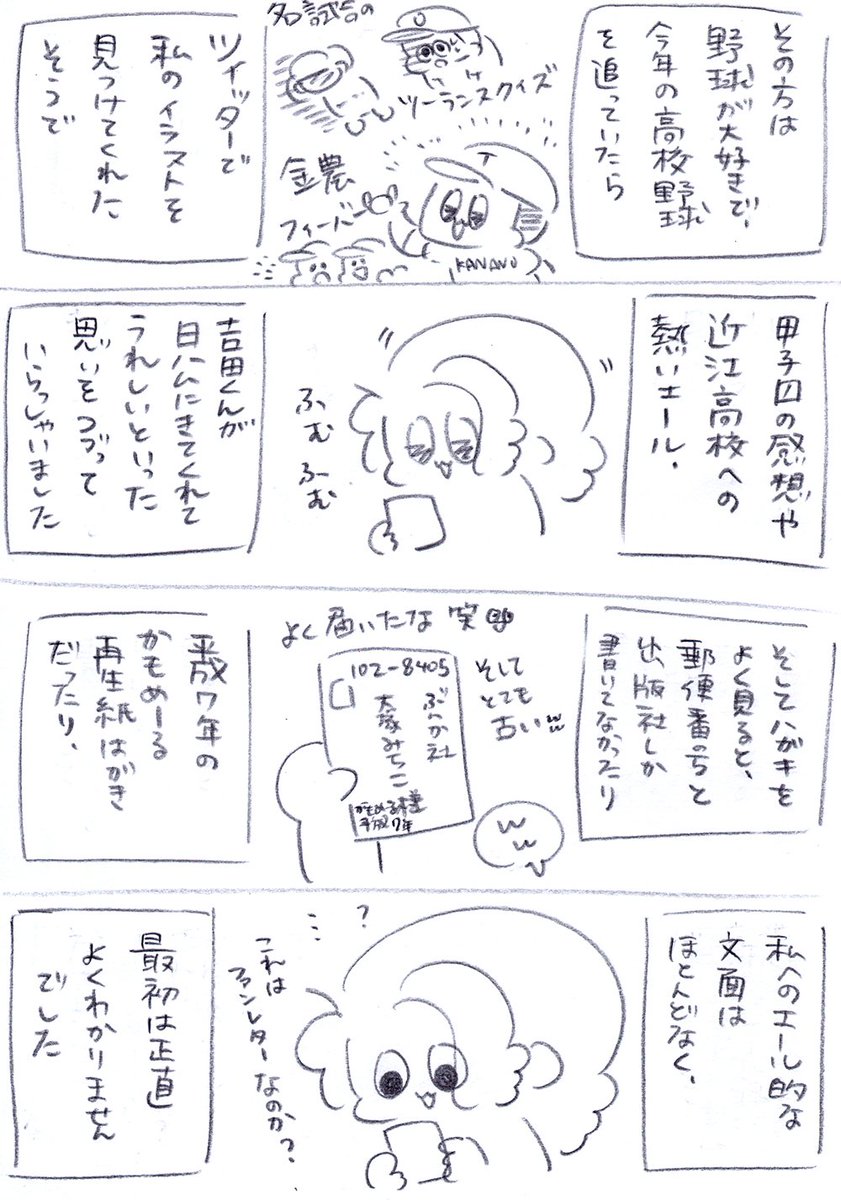 その方は
野球が大好きで、
今年の高校野球
を追っていたら
名試合の
ツーランスクイズ
金農
フィーバー
KANANO
ツイッターで
私のイラストを
見つけてくれた
そうで
甲子園の感想や
近江高校への
熱いエール、
ふむ
ふむ
吉田くんが
日ハムにきてくれて
うれしいといった
思いをつづって
いらっしゃいました
そしてハガキを
よく見ると、
郵便番号と
出版社しか
書いてなかったり
よく届いたな笑
そして
とても
古いww
102-8405
ぶんか社
大塚みちこ
様
かもめーる
平成7年
ww
平成7年の
かもめーる
再生紙はがき
だったり、
私へのエール的な
文面は
ほとんどなく、
?
これは
ファンレターなのか?
最初は正直
よくわかりません
でした